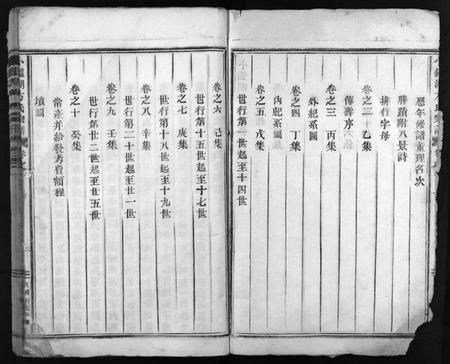 歷年修譜董理名次
勝蹟附八景詩
排行字母
卷之二 乙集
傳壽序
卷之三 丙集
外紀系圖
卷之四 丁集
內紀系圖
卷之五 戊集
世行第一世起至十四世
卷之六 己集
世行第十五世起至十七世
卷之七 庚集
世行第十八世起至十九世
卷之八 辛集
世行第二十世起至廿一世
卷之九 壬集
世行第廿二世起至廿五世
卷之十 癸集
常產并拾發考費領程
墳圖